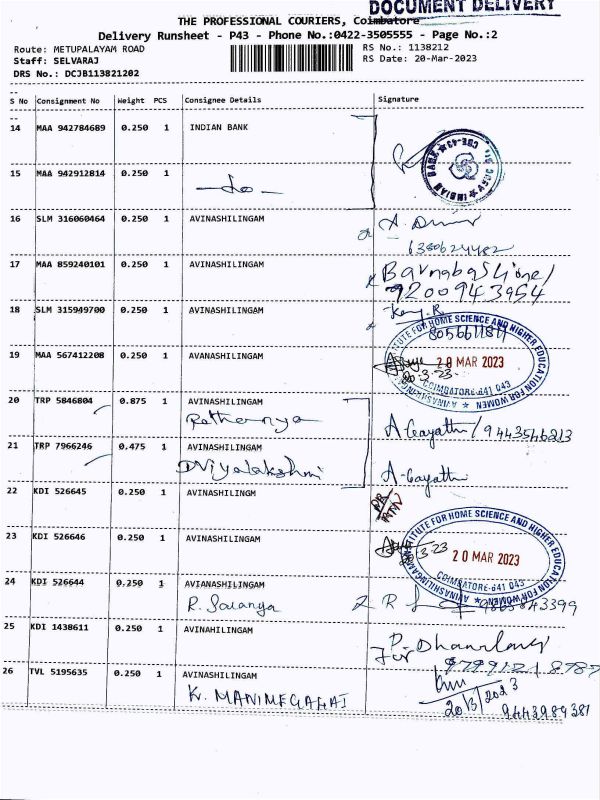 DOCUMENT DELIVERY
THE PROFESSIONAL COURIERS, Coimbatore
Delivery Runsheet - P43 - Phone No.:0422-3505555 - Page No.:2
Route: METUPALAYAM ROAD RS No.: 1138212
Staff: SELVARAJ RS Date: 20-Mar-2023
DRS No.: DCJB113821202
S No Consignment No Weight PCS Consignee Details Signature
14 MAA 942784689 0.250 1 INDIAN BANK
INDIAN BANK
15 MAA 942912814 0.250 1
16 SLM 316060464 0.250 1 AVINASHILINGAM
17 MAA 859240101 0.250 1 AVINASHILINGAM
9200943954
18 SLM 315949700 0.250 1 AVINASHILINGAM
19 MAA 567412208 0.250 1 AVANASHILINGAM
INSTITUTE FOR HOME SCIENCE AND HIGHER EDUCATION FOR WOMEN
20 MAR 2023
COIMBATORE-641 043
20 TRP 5846804 0.875 1 AVINASHILINGAM
A Gayathri / 9443546213
21 TRP 7966246 0.475 1 AVINASHILINGAM
A-Gayathri
22 KDI 526645 0.250 1 AVINASHILINGM
23 KDI 526646 0.250 1 AVINASHILINGAM
INSTITUTE FOR HOME SCIENCE AND HIGHER EDUCATION FOR WOMEN
20 MAR 2023
COIMBATORE-641 043
24 KDI 526644 0.250 1 AVIANASHILINGAM
R. Saranya
25 KDI 1438611 0.250 1 AVINAHILINGAM
26 TVL 5195635 0.250 1 AVINASHILINGAM
K. MANIMEGALAI
20/3/2023
9443989381